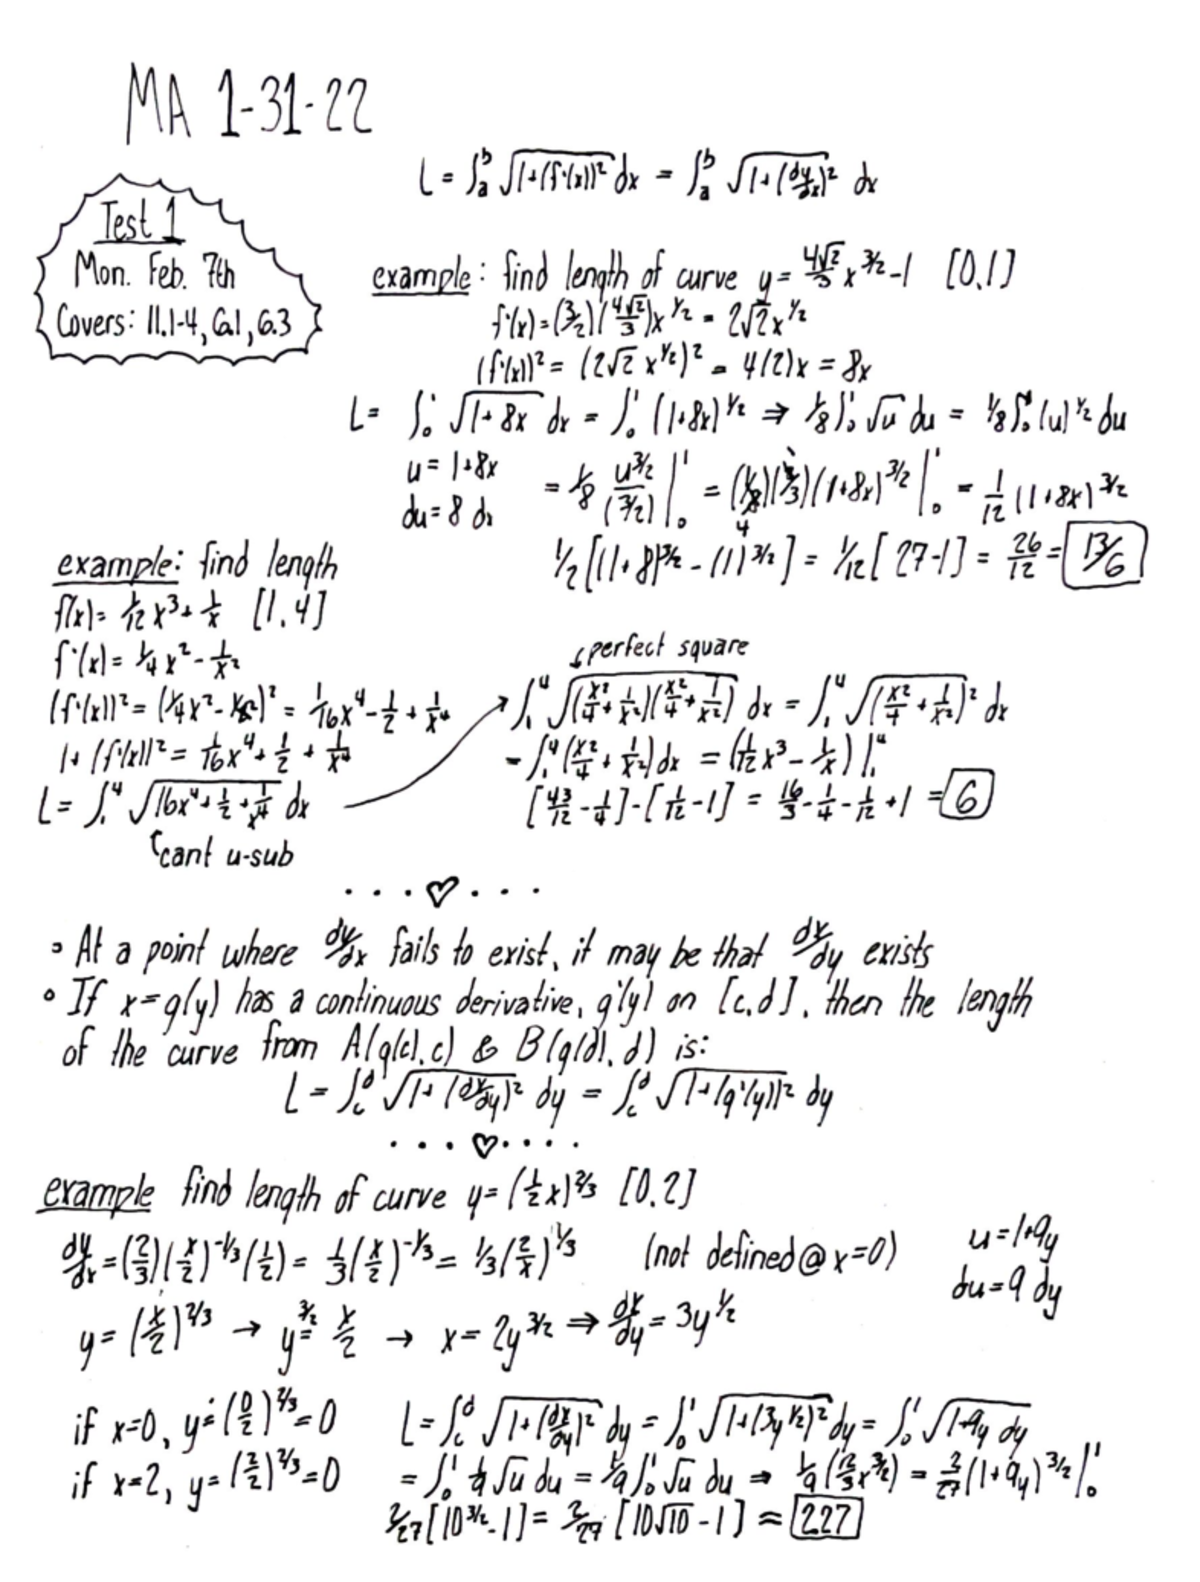 MA 1-31-22
L = ∫ₐᵇ √(1+(f'(x))² dx = ∫ₐᵇ √(1+(dy/dx)² dx
Test 1
Mon. Feb. 7th
Covers: 11.1-4, 6.1, 6.3
example: find length of curve y = 4√2/3 x^3/2 - 1 [0,1]
f'(x) = (3/2)(4√2/3)x^1/2 = 2√2 x^1/2
(f'(x))² = (2√2 x^1/2)² = 4(2)x = 8x
L = ∫₀¹ √(1+8x) dx = ∫₀¹ (1+8x)^1/2 ⇒ 1/8 ∫₀¹ √u du = 1/8 ∫₀¹ (u)^1/2 du
u = 1+8x
du = 8 dx
= 1/8 u^3/2/(3/2) |₀¹ = (1/8)(2/3)(1+8x)^3/2 |₀¹ = 1/12 (1+8x)^3/2
4
1/2 [(1+8)^3/2 - (1)^3/2] = 1/12 [27-1] = 26/12 = 13/6
example: find length
f(x) = 1/12 x³ + 1/x [1,4]
f'(x) = 1/4 x² - 1/x²
(f'(x))² = (1/4 x² - 1/x²)² = 1/16 x⁴ - 1/2 + 1/x⁴
1 + (f'(x))² = 1/16 x⁴ + 1/2 + 1/x⁴
L = ∫₁⁴ √(16x⁴ + 1/2 + 1/x⁴) dx
cant u-sub
perfect square
∫₁⁴ √((x²/4 + 1/x²)(x²/4 + 1/x²)) dx = ∫₁⁴ √((x²/4 + 1/x²)²) dx
= ∫₁⁴ (x²/4 + 1/x²) dx = (1/12 x³ - 1/x) |₁⁴
[43/12 - 1/4] - [1/12 - 1] = 16/3 - 1/4 - 1/12 + 1 = 6
...♡...
• At a point where dy/dx fails to exist, it may be that dx/dy exists
• If x = g(y) has a continuous derivative, g'(y) on [c,d], then the length
of the curve from A(g(c),c) & B(g(d),d) is:
L = ∫c^d √(1+(dx/dy)² dy = ∫c^d √(1+(g'(y))² dy
...♡....
example find length of curve y = (1/2 x)^2/3 [0,2]
dy/dx = (2/3)(x/2)^-1/3 (1/2) = 1/3 (x/2)^-1/3 = 1/3 (2/x)^1/3 (not defined @ x=0)
u = 1+9y
du = 9 dy
y = (x/2)^2/3 → y^3/2 = x/2 → x = 2y^3/2 ⇒ dx/dy = 3y^1/2
if x=0, y = (0/2)^2/3 = 0
if x=2, y = (2/2)^2/3 = 0
L = ∫c^d √(1+(dx/dy)² dy = ∫₀¹ √(1+(3y^1/2)² dy = ∫₀¹ √(1+9y dy
= ∫₀¹ 1/9 √u du = 1/9 ∫₀¹ √u du ⇒ 1/9 (2/3 x^3/2) = 2/27 (1+9y)^3/2 |₀¹
2/27 [10^3/2 - 1] = 2/27 [10√10 - 1] ≈ 227